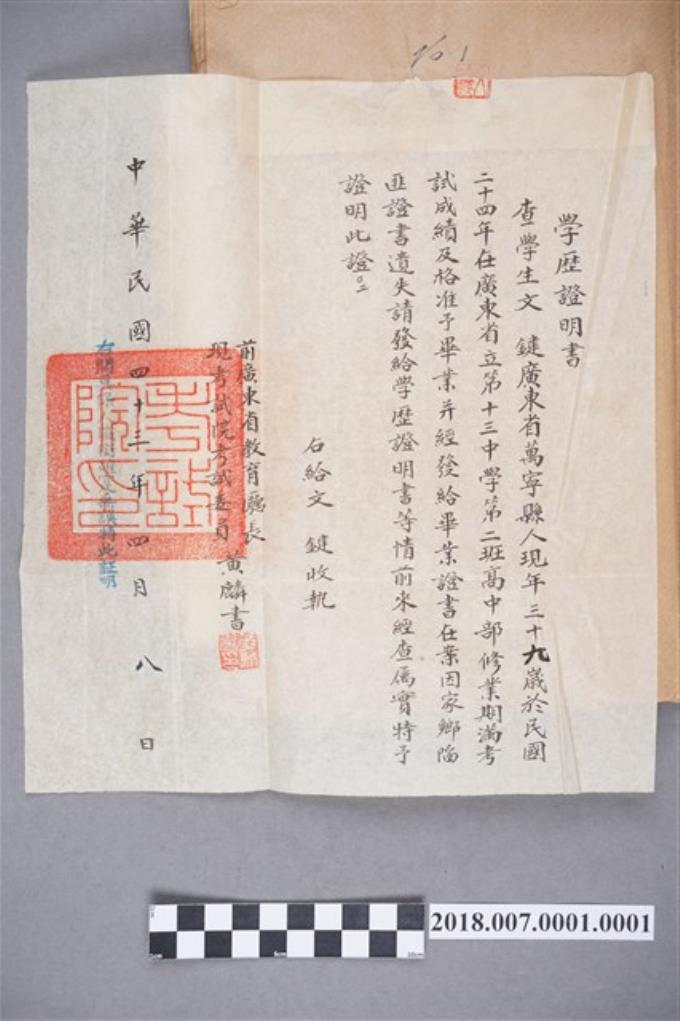 No.1
學歷證明書
查學生文 鍵廣東省萬寧縣人現年三十九歲於民國
二十四年在廣東省立第十三中學第二班高中部修業期滿考
試成績及格准予畢業并經發給畢業證書在案因家鄉陷
匪證書遺失請發給學歷證明書等情前來經查属實特予
證明此證
右給文 鍵收執
前廣東省教育廳長
現考試院考試委員 黃麟書
考試院印
中華民國四十三年四月八日
特此証明
2018.007.0001.0001
5cm
10cm